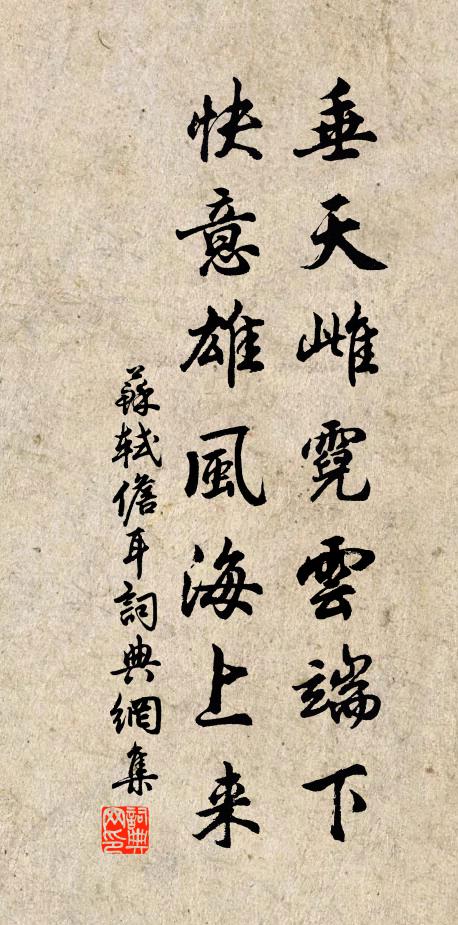 垂天雌霓雲端下
快意雄風海上来
蘇軾儋耳詞典網集
詞典
网印